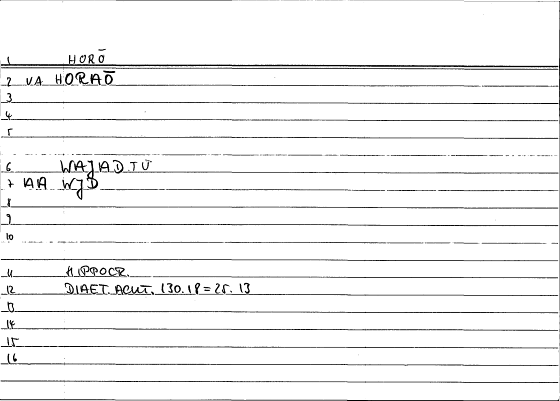 1 HORŌ
2 VA HORAŌ
3
4
5
6 WAJADTU
7 AA WJD
8
9
10
11 HIPPOCR.
12 DIAET. ACUT. 130.18 = 25.13
13
14
15
16